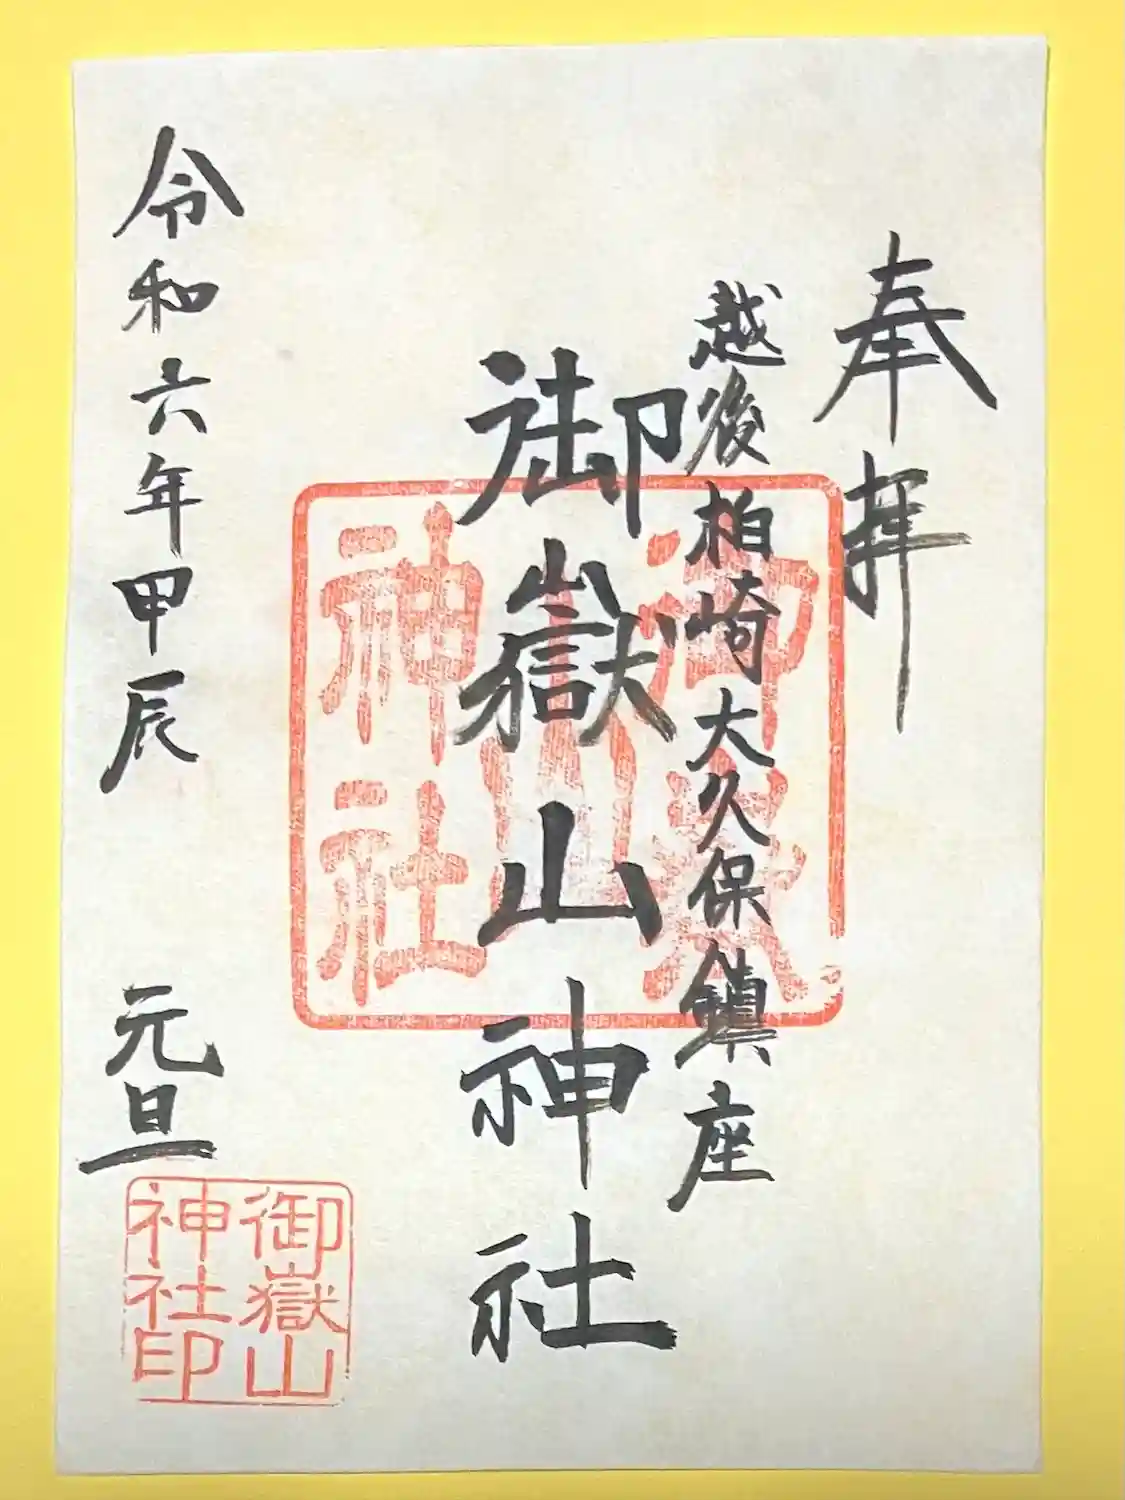 奉拝
越後柏崎大久保鎮座
御嶽山神社
御嶽
山
神社
令和六年甲辰 元旦
御嶽山
神社印